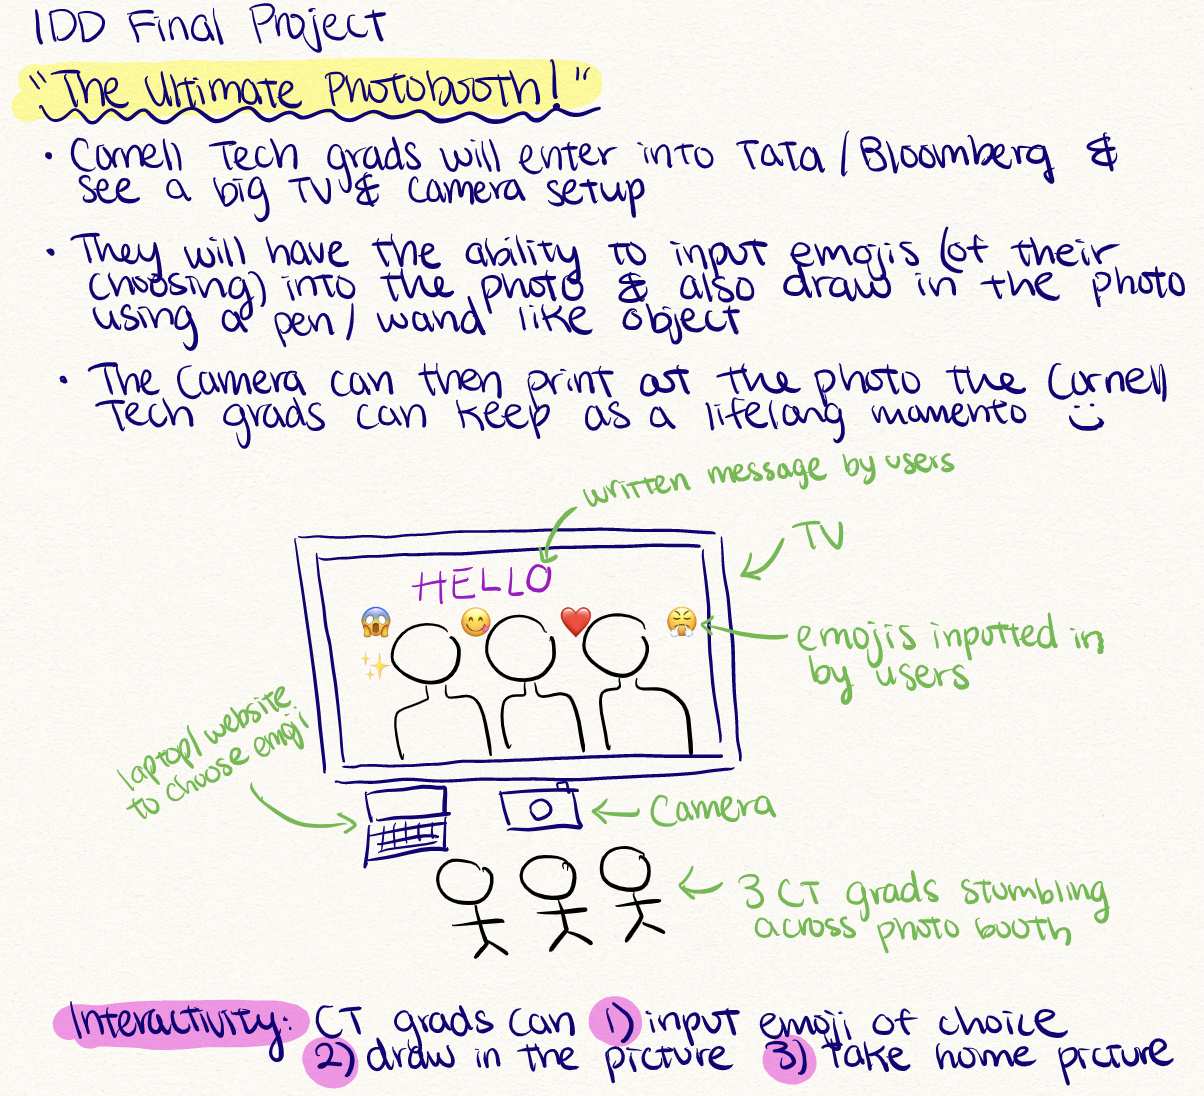 IDD Final Project
"The Ultimate Photobooth!"
• Cornell Tech grads will enter into Tata / Bloomberg &
see a big TV & camera setup
• They will have the ability to input emojis (of their
choosing) into the photo & also draw in the photo
using a pen / wand like object
• The camera can then print out the photo the Cornell
Tech grads can keep as a lifelong momento
written message by users
TV
HELLO
emojis inputted in
by users
laptop/website
to choose emoji
Camera
3 CT grads stumbling
across photo booth
Interactivity: CT grads can 1) input emoji of choice
2) draw in the picture 3) take home picture